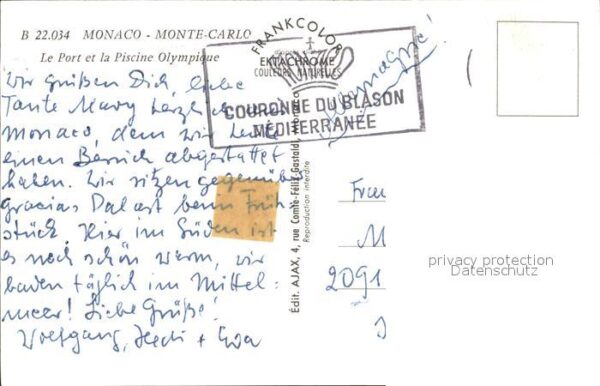 B 22.034 MONACO - MONTE-CARLO
Le Port et la Piscine Olympique
FRANKCOLOR
EKTACHROME
COULEURS NATURELLES
COURONNE DU BLASON
MÉDITERRANÉE
Wir grüßen Dich, liebe
Tante Mary herzlich
Monaco, dem wir heute
einen Besuch abgestattet
haben. Wir sitzen gegenüber
gracias Palast beim Früh-
stück. Hier im Süden ist
es noch schön warm, wir
baden täglich im Mittel-
meer! Liebe Grüße!
Wolfgang, Hedi + Eva
Édit. AJAX, 4, rue Comte-Félix-Gastaldi, Monaco
Reproduction interdite
Frau
M
2091
privacy protection
Datenschutz